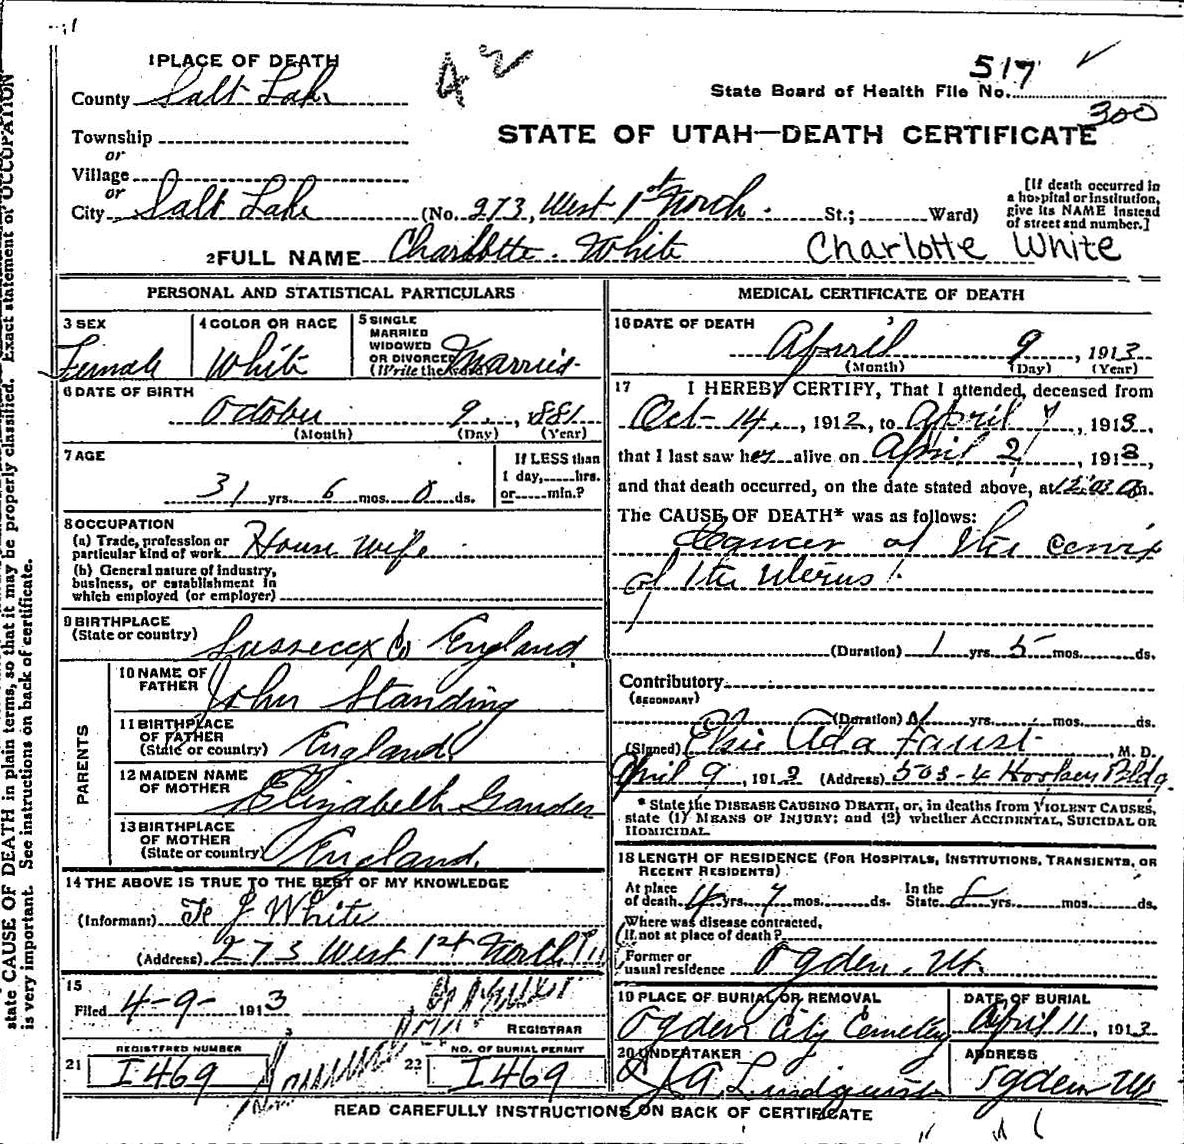 42
517
1 PLACE OF DEATH
County Salt Lake
State Board of Health File No.
300
Township
or
STATE OF UTAH—DEATH CERTIFICATE
Village
or
City Salt Lake (No. 273, West 1st North. St.; Ward)
[If death occurred in
a hospital or institution,
give its NAME instead
of street and number.]
2 FULL NAME Charlotte White Charlotte White
PERSONAL AND STATISTICAL PARTICULARS
3 SEX
Female
4 COLOR OR RACE
White
5 SINGLE
MARRIED
WIDOWED
OR DIVORCED
(Write the word) Married
6 DATE OF BIRTH
October 9, 1881
(Month) (Day) (Year)
7 AGE
31 yrs. 6 mos. 0 ds.
If LESS than
1 day, hrs.
or min.?
8 OCCUPATION
(a) Trade, profession or
particular kind of work House wife
(b) General nature of industry,
business, or establishment in
which employed (or employer)
9 BIRTHPLACE
(State or country) Sussecex Co England
PARENTS
10 NAME OF
FATHER John Standing
11 BIRTHPLACE
OF FATHER
(State or country) England
12 MAIDEN NAME
OF MOTHER Elizabeth Gander
13 BIRTHPLACE
OF MOTHER
(State or country) England.
14 THE ABOVE IS TRUE TO THE BEST OF MY KNOWLEDGE
(Informant) J White
(Address) 273 West 1st North
15
Filed 4-9- 1913
REGISTRAR
21 REGISTERED NUMBER
I469
22 NO. OF BURIAL PERMIT
I469
MEDICAL CERTIFICATE OF DEATH
16 DATE OF DEATH
April 9, 1913
(Month) (Day) (Year)
17 I HEREBY CERTIFY, That I attended, deceased from
Oct- 14, 1912, to April 7, 1913,
that I last saw her alive on April 2, 1913,
and that death occurred, on the date stated above, at m.
The CAUSE OF DEATH* was as follows:
Cancer of the cervix
of the uterus.
(Duration) 1 yrs. 5 mos. ds.
Contributory
(SECONDARY)
(Duration) yrs. mos. ds.
(Signed) Elsie Ada Faust, M. D.
April 9, 1913 (Address) 503-4 Bldg.
* State the DISEASE CAUSING DEATH, or, in deaths from VIOLENT CAUSES,
state (1) MEANS OF INJURY; and (2) whether ACCIDENTAL, SUICIDAL OR
HOMICIDAL.
18 LENGTH OF RESIDENCE (FOR HOSPITALS, INSTITUTIONS, TRANSIENTS, OR
RECENT RESIDENTS)
At place
of death 4 yrs. 7 mos. ds.
In the
State yrs. mos. ds.
Where was disease contracted,
If not at place of death?
Former or
usual residence Ogden, Ut.
19 PLACE OF BURIAL OR REMOVAL
Ogden City Cemetery
DATE OF BURIAL
April 11, 1913
20 UNDERTAKER
J A Lindquist
ADDRESS
Ogden Ut
READ CAREFULLY INSTRUCTIONS ON BACK OF CERTIFICATE
state CAUSE OF DEATH in plain terms, so that it may be properly classified. Exact statement of OCCUPATION
is very important. See instructions on back of certificate.